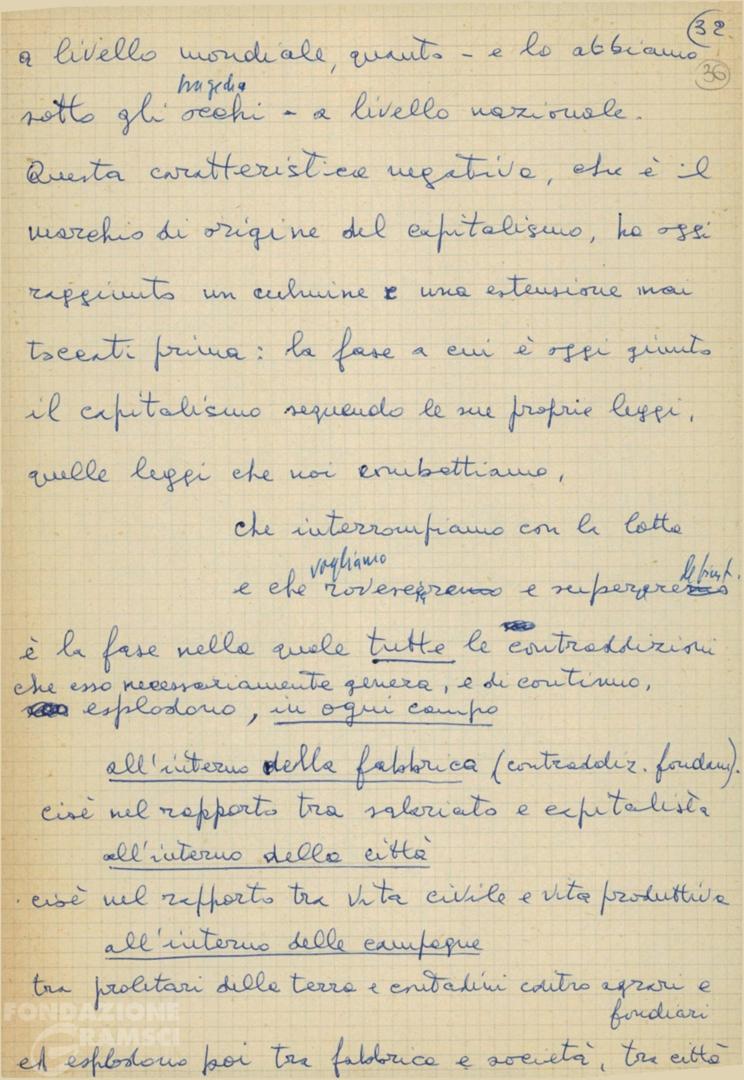 32
36
a livello mondiale, quanto - e lo abbiamo
sotto gli occhi - a livello nazionale.
Questa caratteristica negativa, che è il
marchio di origine del capitalismo, ha oggi
raggiunto un culmine e una estensione mai
toccati prima: la fase a cui è oggi giunto
il capitalismo seguendo le sue proprie leggi,
quelle leggi che noi combattiamo,
che interrompiamo con la lotta
vogliamo
e che rovesceremo e supereremo
è la fase nella quale tutte le contraddizioni
che esso necessariamente genera, e di continuo,
esplodono, in ogni campo
all'interno della fabbrica (contraddiz. fondam).
cioè nel rapporto tra salariato e capitalista
all'interno della città
cioè nel rapporto tra vita civile e vita produttiva
all'interno delle campagne
tra proletari della terra e contadini contro agrari e
fondiari
ed esplodono poi tra fabbrica e società, tra città
FONDAZIONE
GRAMSCI